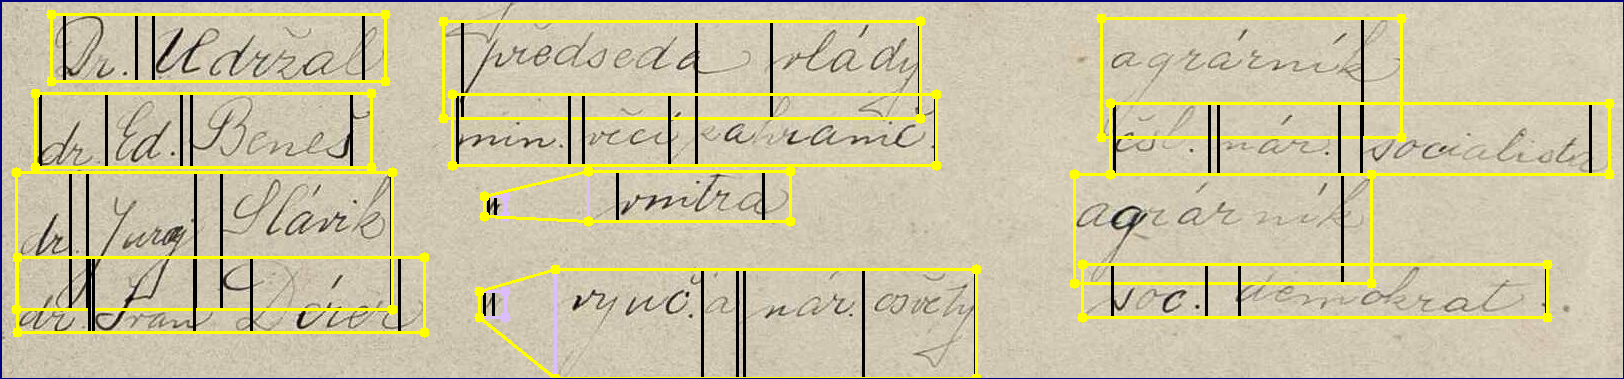 Dr. Udržal předseda vlády agrárník
dr. Ed. Beneš min. věcí zahranič. čsl. nár. socialista
dr. Juraj Slávik " vnitra agrárník
dr. Ivan Dérer " vyuč. a nár. osvěty soc. demokrat.